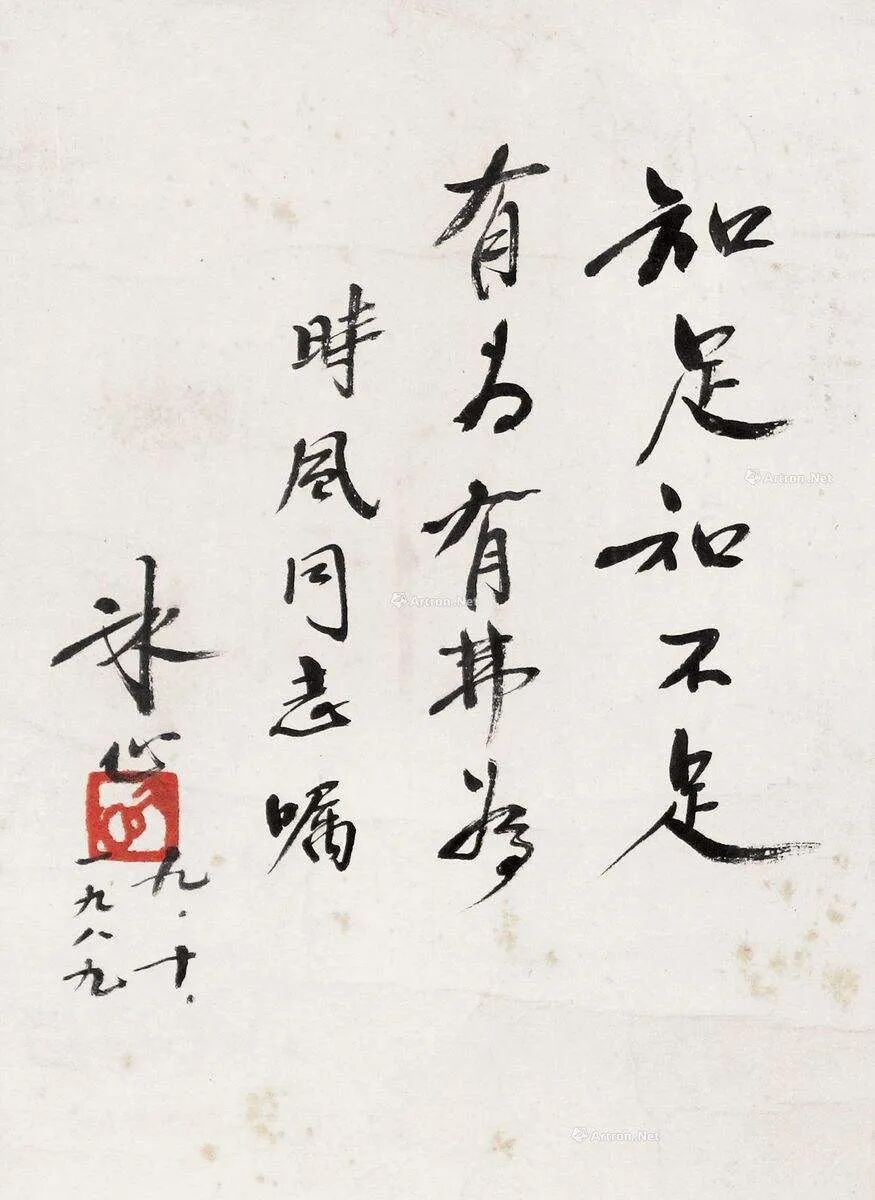 知足知不足
有为有弗為
時風同志嘱
冰心
九.十.
一九八九
Artron.Net
Artron.Net
Artron.Net